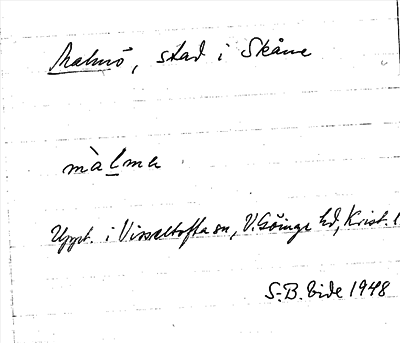 Malmö, stad i Skåne
màlma
Uppt. i Visseltofta sn, V. Göinge hd, Krist. l
S.-B. Vide 1948